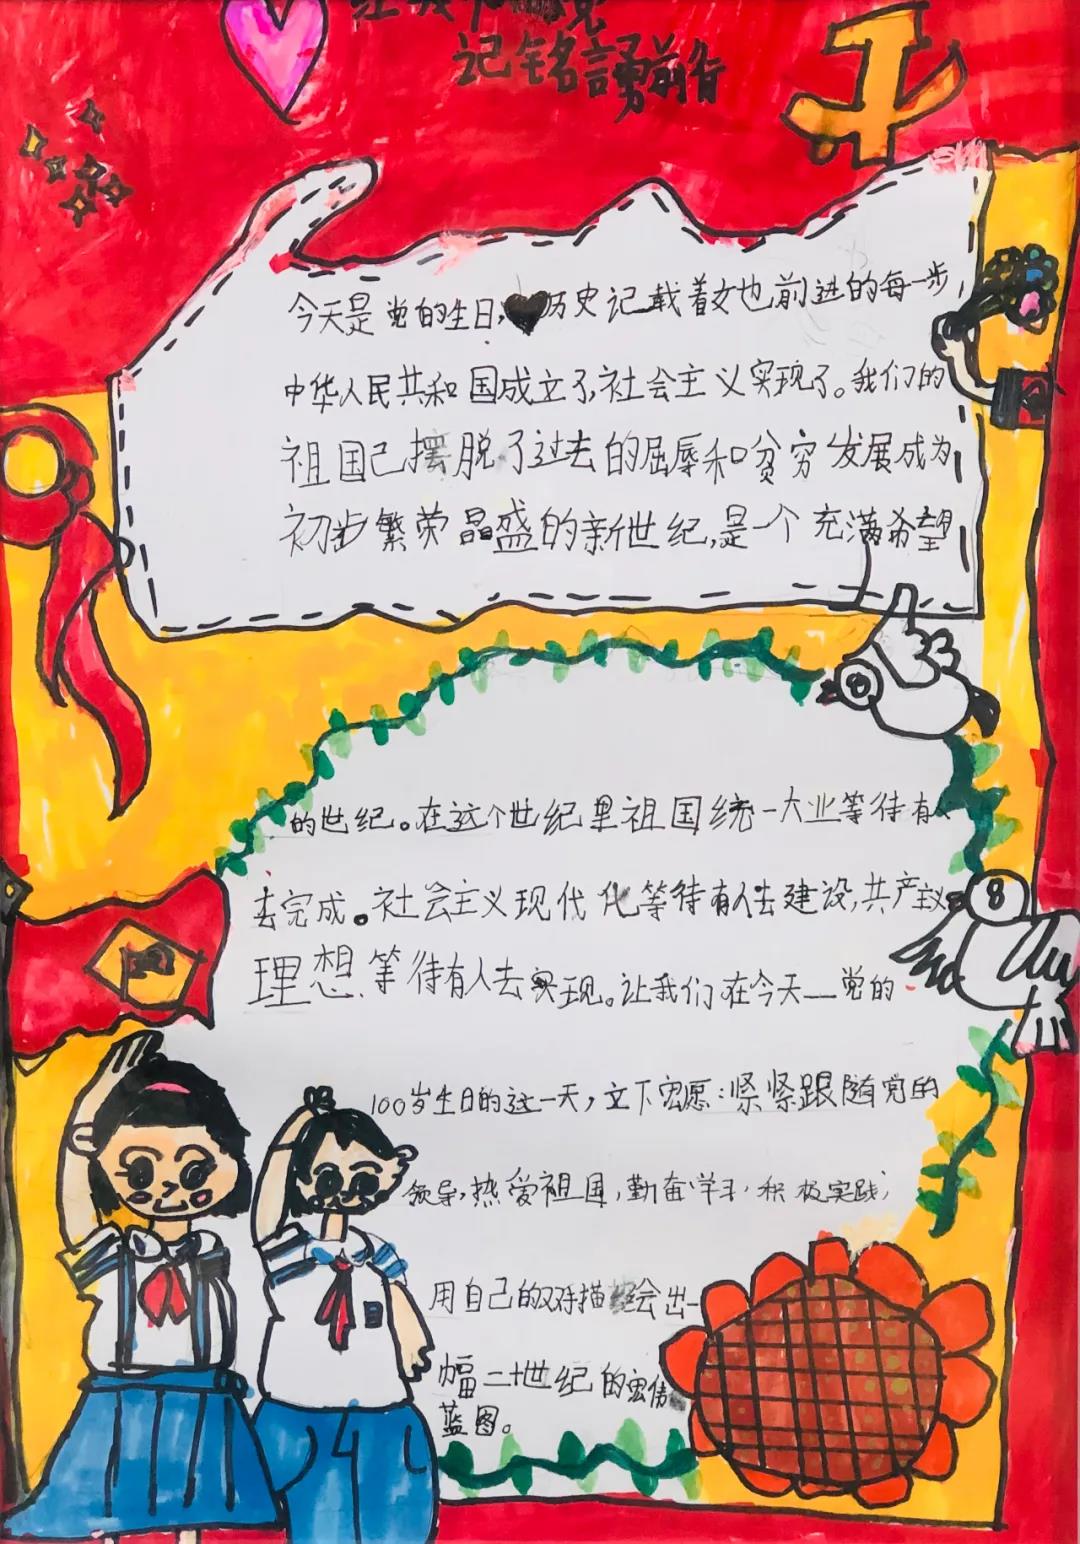 党
记铭言勇前行
今天是党的生日,历史记载着文也前进的每一步,
中华人民共和国成立了,社会主义实现了。我们的
祖国已摆脱了过去的屈辱和贫穷发展成为
初步繁荣晶盛的新世纪,是一个充满希望
的世纪。在这个世纪里祖国统一大业等待有人
去完成。社会主义现代化等待有人去建设,共产主义
理想等待有人去实现。让我们在今天__党的
100岁生日的这一天,立下宏愿:紧紧跟随党的
领导,热爱祖国,勤奋学习,积极实践,
用自己的双手描绘出一
幅二十世纪的宏伟
蓝图。